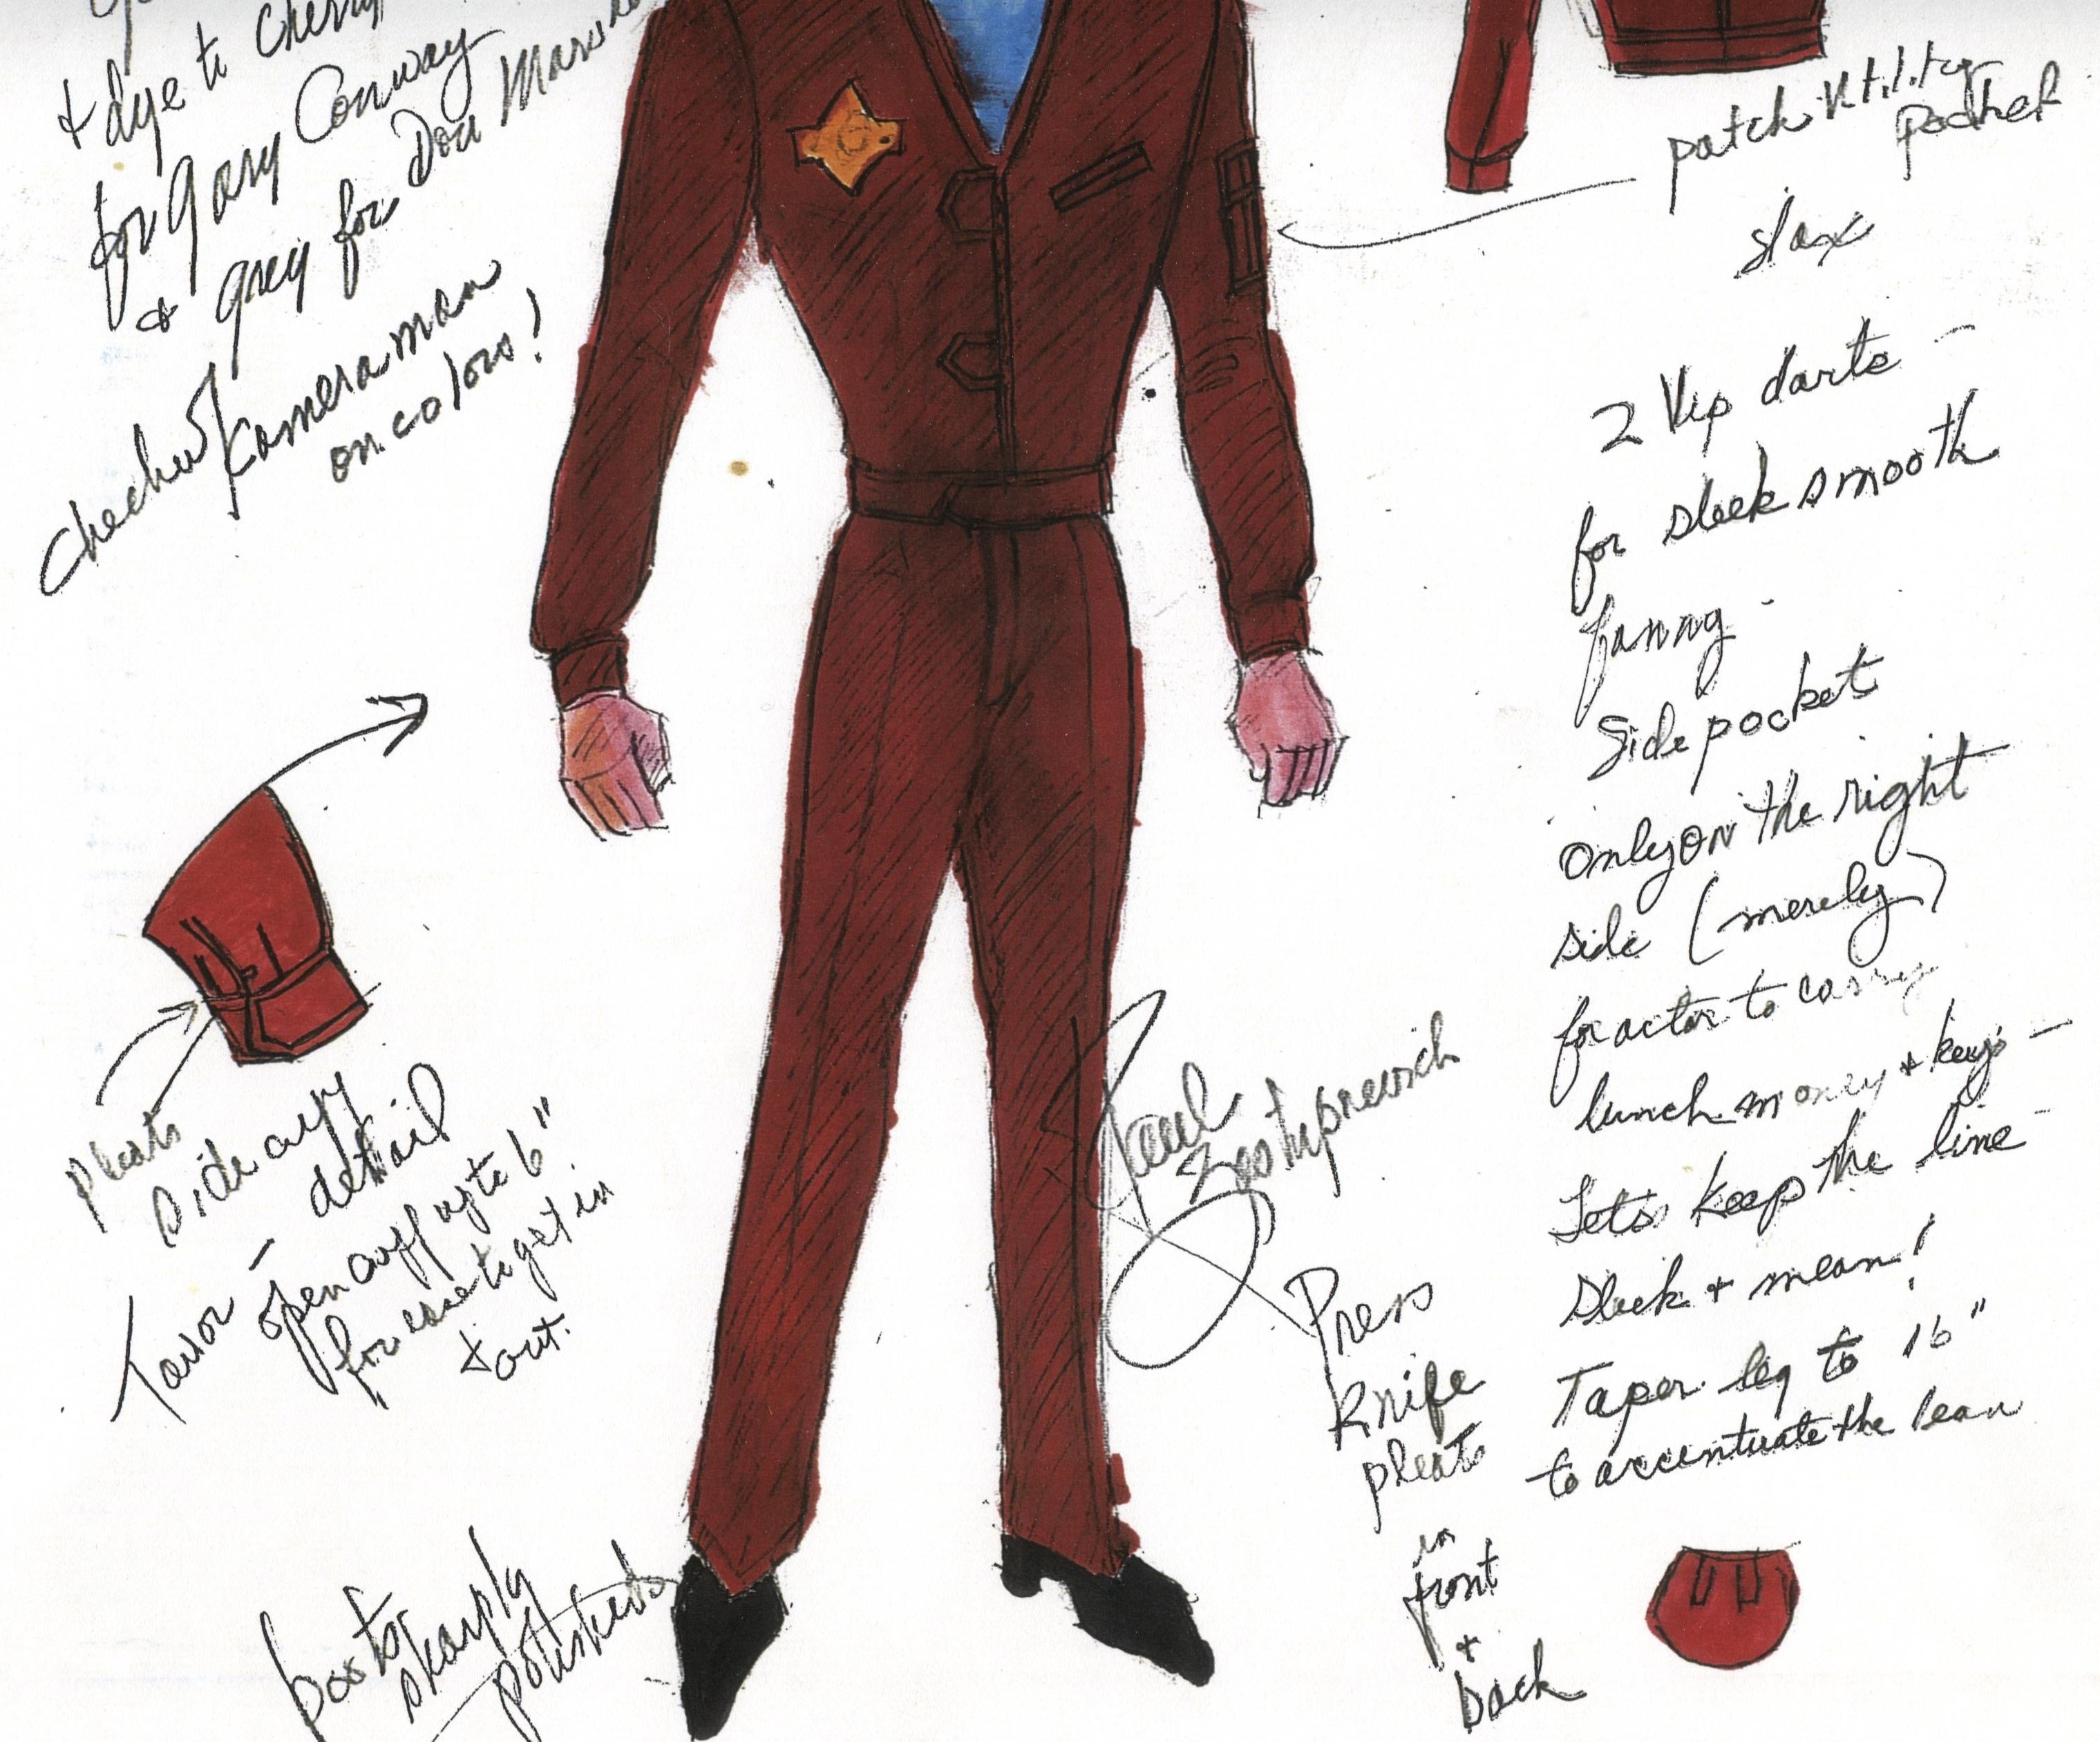 & dye to cherry
for Gary Conway
& grey for Don
check w/ Kamera man
on colors!
pleats
side cuff
detail
open cuff up to 6"
for ease to get in
& out.
boots
sharply
polished
patch utility
pocket
slax
2 Vip darts -
for sleek smooth
fanny -
Side pocket
only on the right
side (merely)
for actor to carry
lunch money & keys -
Let's keep the line -
sleek & mean!
Taper leg to 16"
to accentuate the lean
Paul
Zastupnevich
Press
Knife
pleats
in
front
&
back